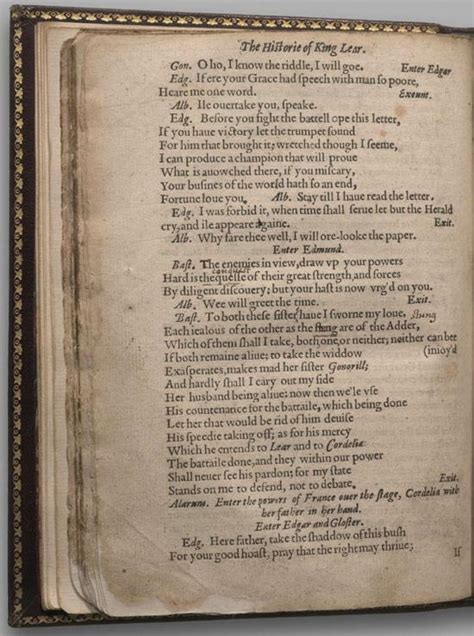 The Historie of King Lear.
Gon. O ho, I know the riddle, I will goe. Enter Edgar
Edg. If ere your Grace had speech with man so poore,
Heare me one word. Exeunt.
Alb. Ile ouertake you, speake.
Edg. Before you fight the battell ope this letter,
If you haue victory let the trumpet sound
For him that brought it; wretched though I seeme,
I can produce a champion that will proue
What is auowched there, if you miscary,
Your busines of the world hath so an end,
Fortune loue you, Alb. Stay till I haue read the letter.
Edg. I was forbid it, when time shall serue let but the Herald
cry, and ile appeare againe. Exit.
Alb. Why fare thee well, I will ore-looke the paper.
Enter Edmund.
Bast. The enemies in view, draw vp your powers
conquest
Hard is the quelle of their great strength, and forces
By diligent discouery; but your hast is now vrg'd on you.
Alb. Wee will greet the time. Exit.
Bast. To both these sister haue I sworne my loue, stung
Each iealous of the other as the stung are of the Adder,
Which of them shall I take, both, one, or neither; neither can bee
If both remaine aliue; to take the widdow (inioy'd
Exasperates, makes mad her sister Gonorill;
And hardly shall I cary out my side
Her husband being aliue: now then we'le vse
His countenance for the battaile, which being done
Let her that would be rid of him deuise
His speedie taking off; as for his mercy
Which he entends to Lear and to Cordelia:
The battaile done, and they within our power
Shall neuer see his pardon; for my state
Stands on me to defend, not to debate. Exit.
Alarum. Enter the powers of France ouer the stage, Cordelia with
her father in her hand.
Enter Edgar and Gloster.
Edg. Here father, take the shaddow of this bush
For your good hoast, pray that the right may thriue;
If